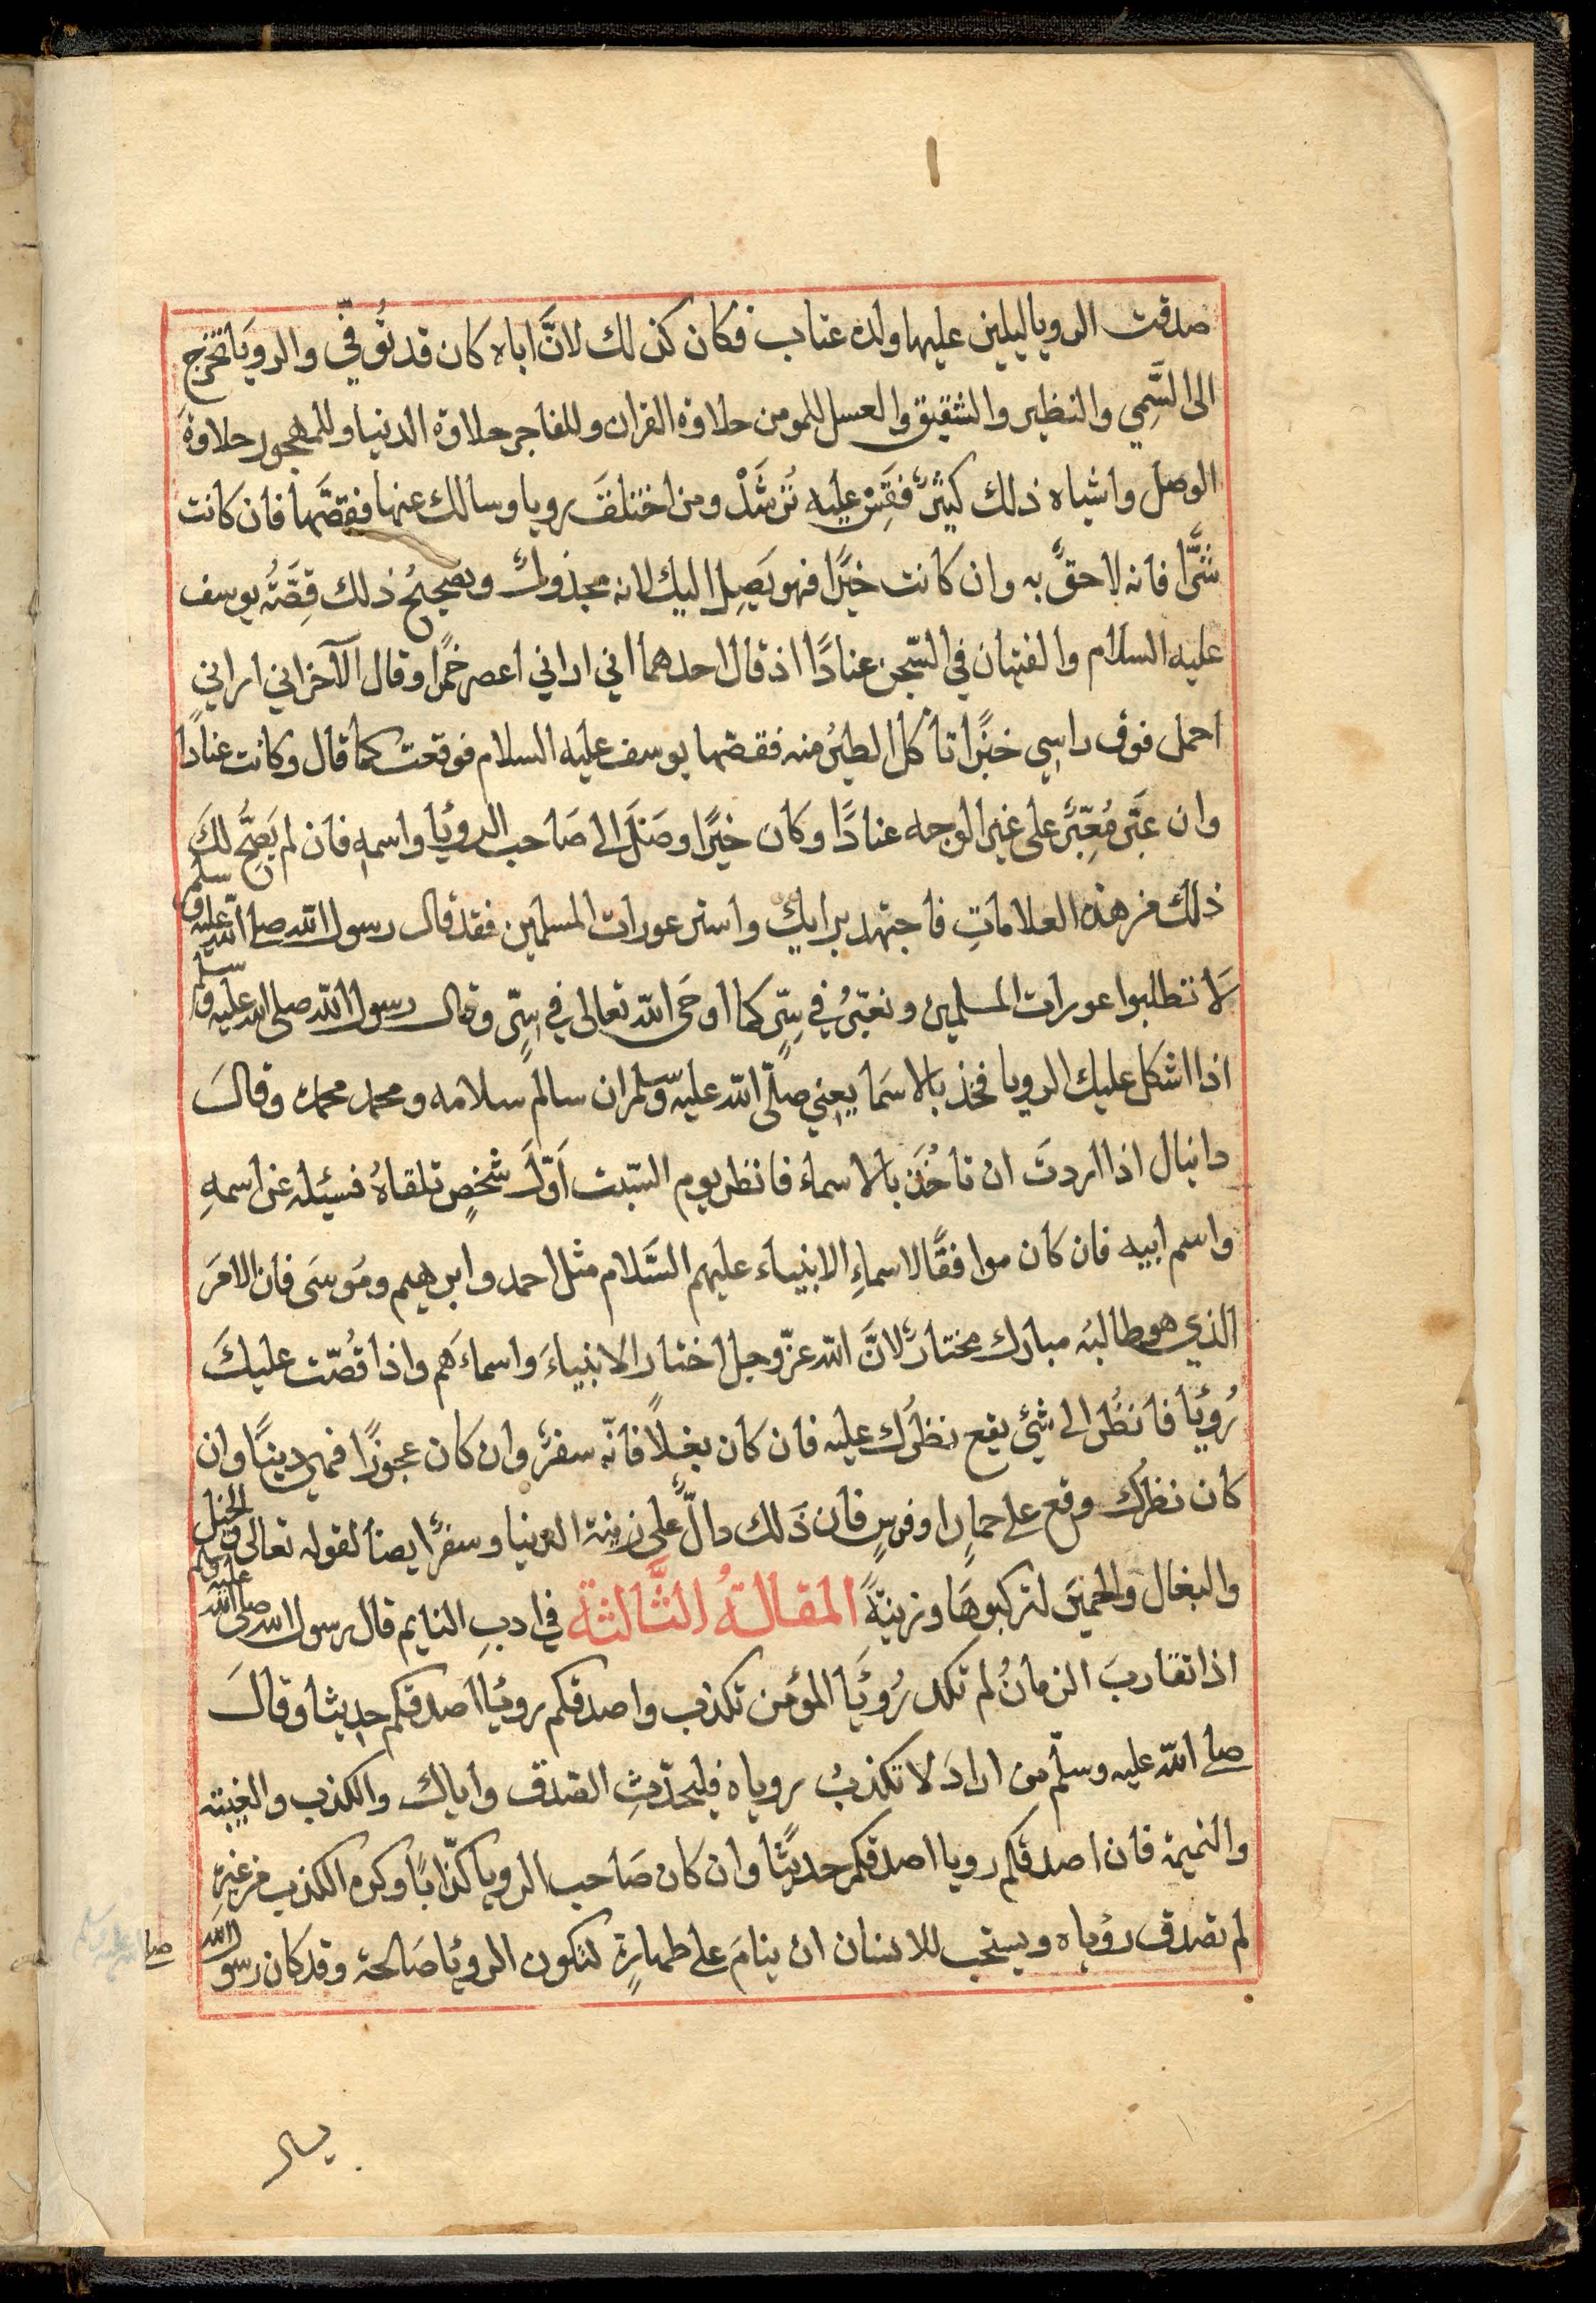 صدقت الرويا ليلين عليها ولده عناب فكان كذلك لانَّ اباه كان قد تُوفّي والرويَا تخرج
الى السَّمِي والنظير والشقيق والعسل للمومن حلاوة القران وللفاجر حلاوة الدنيا وللمهجور حلاوة
الوصل واشباه ذلك كثيرٌ فقِسْ عليه تُرشَدْ ومن اختلفَ رويا وسالك عنها فقصَّها فان كانت
شرًّا فانه لاحقٌ به وان كانت خيرًا فهو يَصِل اليك لانه مجذوبك وتصحيحُ ذلك قِصَّةُ يوسف
عليه السلام والفتيان في السّجن عنادًا اذ قال احدهما اني اراني اعصر خمرًا وقال الآخر اني اراني
احمل فوق راسي خبزًا تاكل الطيرُ منه فقصّها يوسف عليه السلام فوقعت كما قال وكانت عنادًا
وان عبَّر مُعبِّرٌ على غير الوجه عنادًا وكان خيرًا وصَلَ الى صَاحب الرويَا واسمهِ فان لم يَصحَّ لكَ
ذلك من هذه العلاماتِ فاجتهد برايك واستر عورات المسلمين فقد قال رسول الله صلى الله عليه وسلم
لَا تطلبوا عورات المسلمين ونعبّرُ في سِرٍّ كما اوحَى الله تعالى في سِرٍّ وقال رسول الله صلى الله عليه وسلم
اذا اشكل عليك الرويا فخذ بالاسمَا يعني صلّى الله عليه وسلم ان سالم سلامه ومحمد محمده وقالَ
دانيال اذا اردتَ ان تاخُذ بالاسماء فانظر يوم السّبت اَوّلَ شخصٍ تلقاهُ فسئله عن اسمهِ
واسم ابيه فان كان موافقًا لاسماءِ الانبياء عليهم السَّلام مثل احمد وابرهيم ومُوسَى فان الامرَ
الذي هو طالبُه مبارك مختارٌ لانَّ الله عزّ وجل اختار الانبياءَ واسماءَهم واذا قُصّت عليكَ
رُوْيَا فانظُر الى شئ يقع نظرُك عليه فان كان بغلًا فانّه سفرٌ وان كان عجوزًا فهي دينًا وان
كان نظرُك وقع على حمارٍ او فرسٍ فان ذَلك دالٌّ على زينة الدنيا وسفرٌ ايضًا لقوله تعالى والخيل
والبغال والحميرَ لتركبوهَا وزينةً المقالةُ الثَّالثة في ادبِ النايم قال رسول الله صلى الله عليه وسلم
اذا تقاربَ الزمانُ لم تكد رُوْيَا المؤمن تكذب واصدقكم روْيَا اصدقكم حديثا وقالَ
صلى الله عليه وسلّم من ارادَ لا تكذبُ روياه فليحدّثِ الصدق واياك والكذب والغيبته
والنميمة فان اصدقكم رويا اصدقكم حديثًا وان كان صَاحب الرويا كذّابًا وكره الكذب من غيرِه
لم تصدق رؤياه ويستحب للانسان ان ينامَ على طهارةٍ لتكون الروْيَا صَالحة وقد كان رسول الله
صلى الله عليه وسلم